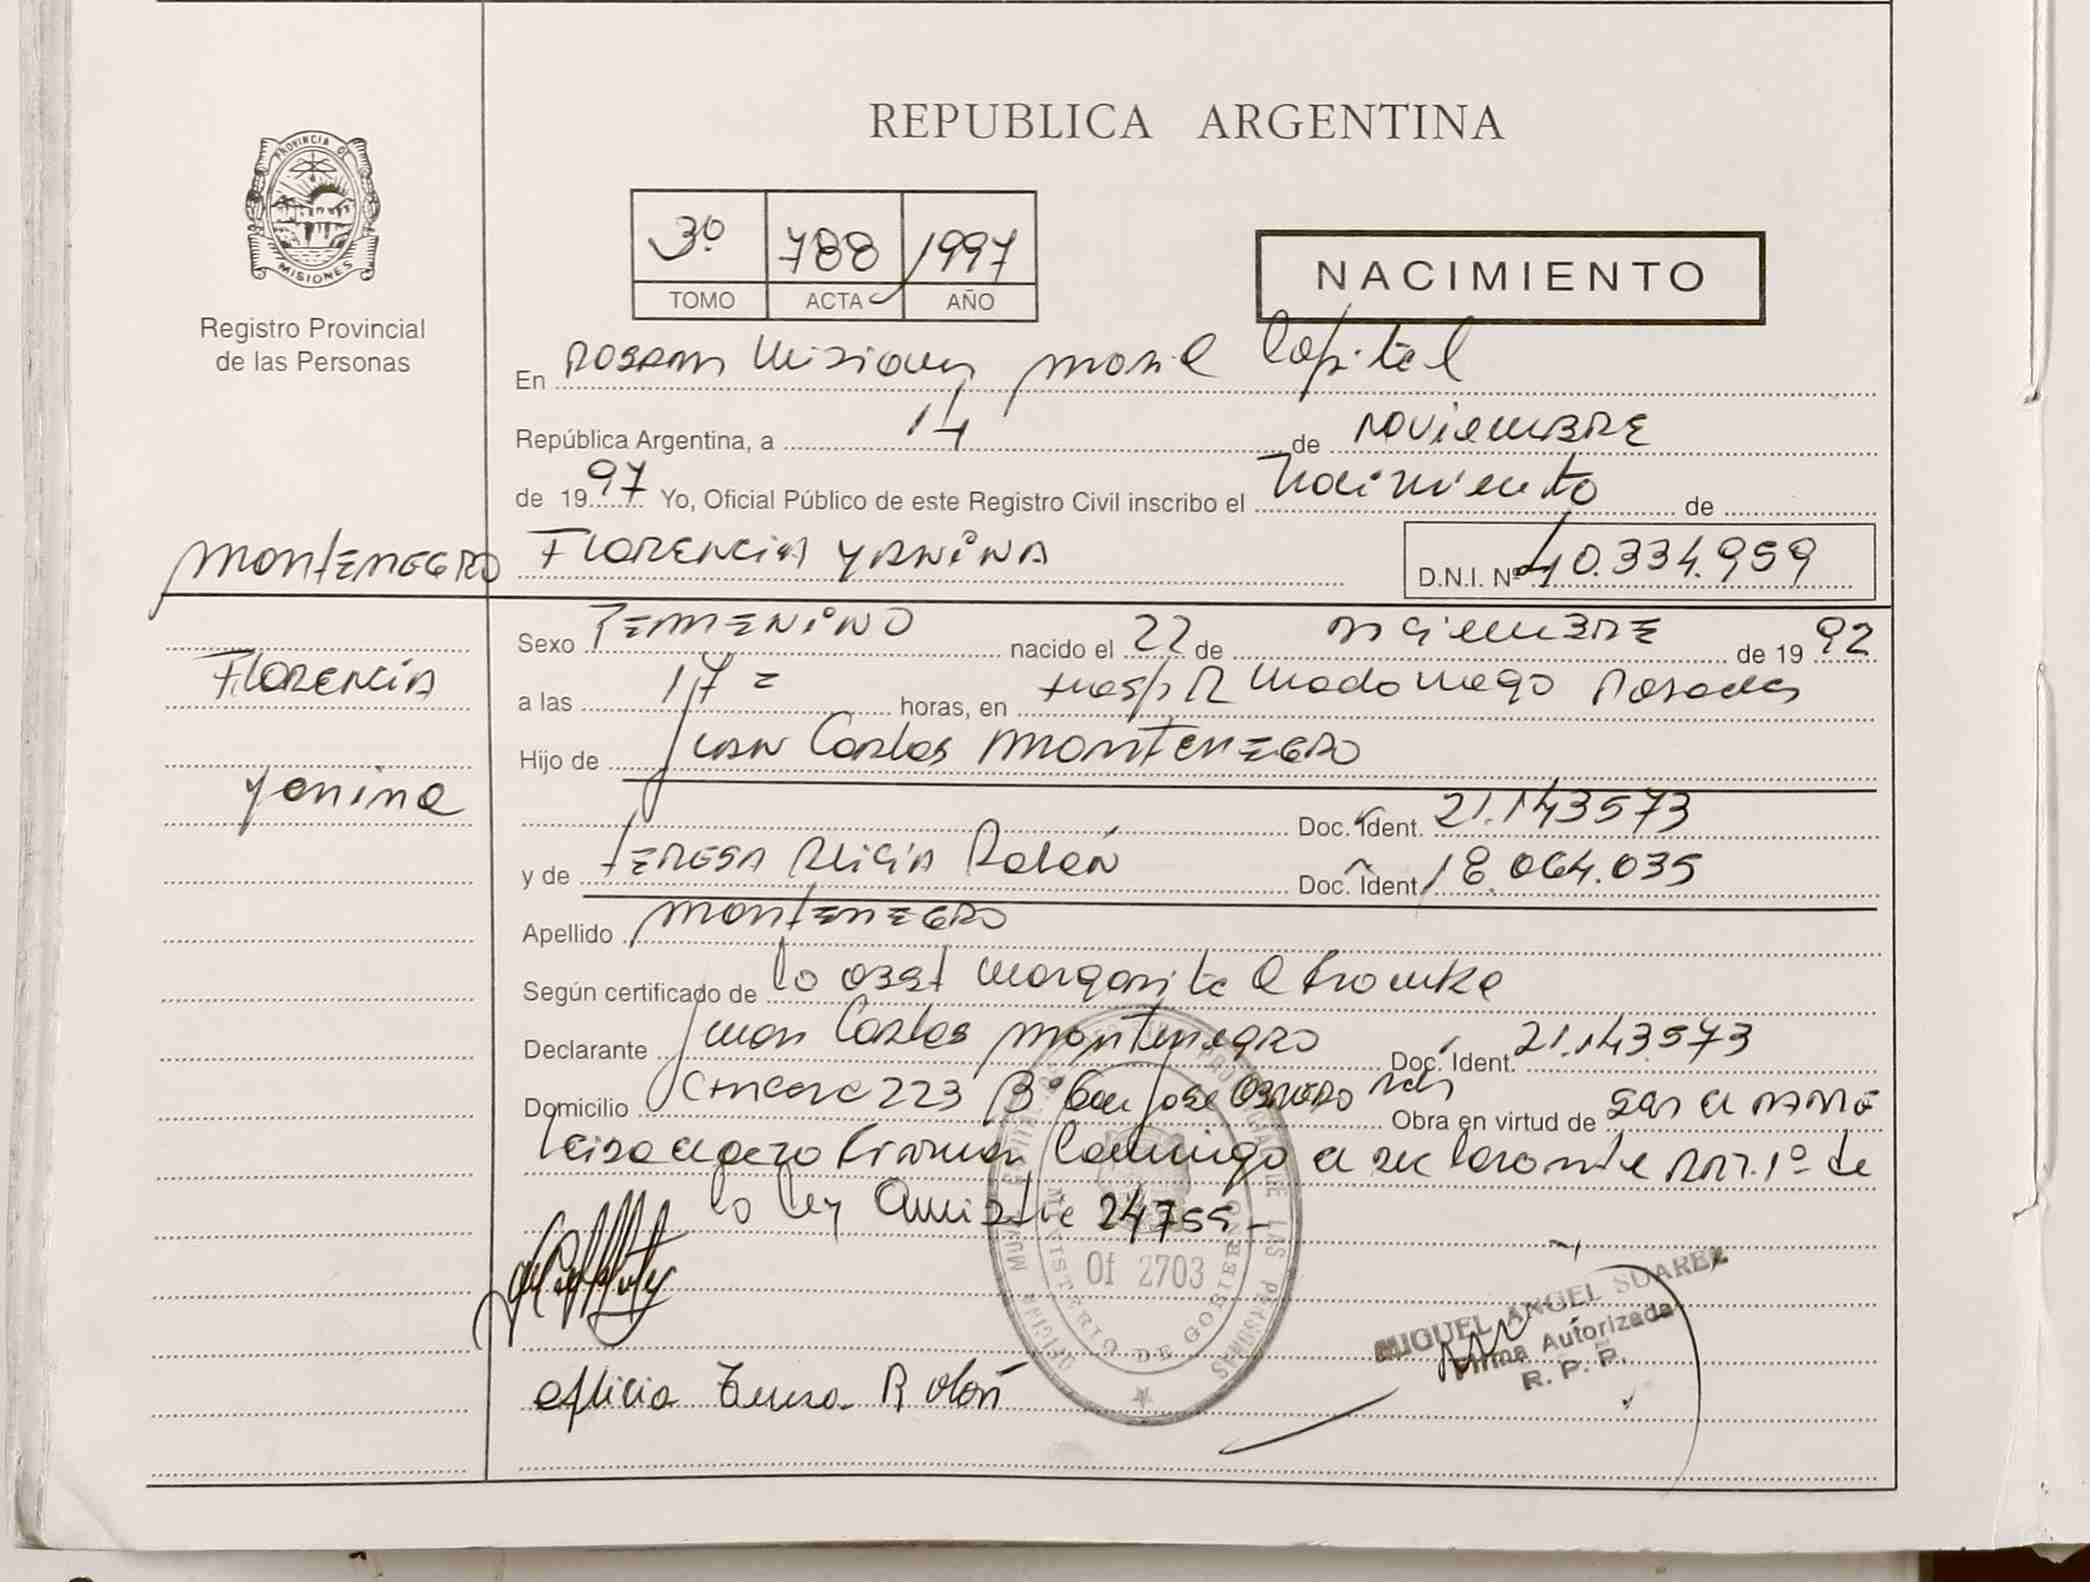 REPUBLICA ARGENTINA
PROVINCIA DE
MISIONES
Registro Provincial
de las Personas
3º 788 1997
TOMO ACTA AÑO
NACIMIENTO
En Posadas Misiones Movil Capital
República Argentina, a 14 de noviembre
de 1997 Yo, Oficial Público de este Registro Civil inscribo el Nacimiento de
MONTENEGRO FLORENCIA YANINA D.N.I. Nº 40.334.959
Sexo FEMENINO nacido el 22 de de 1992
Florencia
a las 17 = horas, en Hosp R Madariaga Posadas
Hijo de Juan Carlos MONTENEGRO
Yanina
Doc. Ident. 21.143573
y de TERESA ALICIA Rolón Doc. Ident. 18.064.035
Apellido MONTENEGRO
Según certificado de la Obst Margarita
Declarante Juan Carlos Montenegro Doc. Ident. 21.143.573
Domicilio 223 Bº San Jose Obrero Obra en virtud de ser el padre
Leida el acta Firman Conmigo el declarante Art. 1º de
la ley Amnistie 24755-
Of 2703
MINISTERIO DE GOBIERNO
MIGUEL ANGEL SUAREZ
Firma Autorizada
R. P. P.
Alicia Teresa Rolón